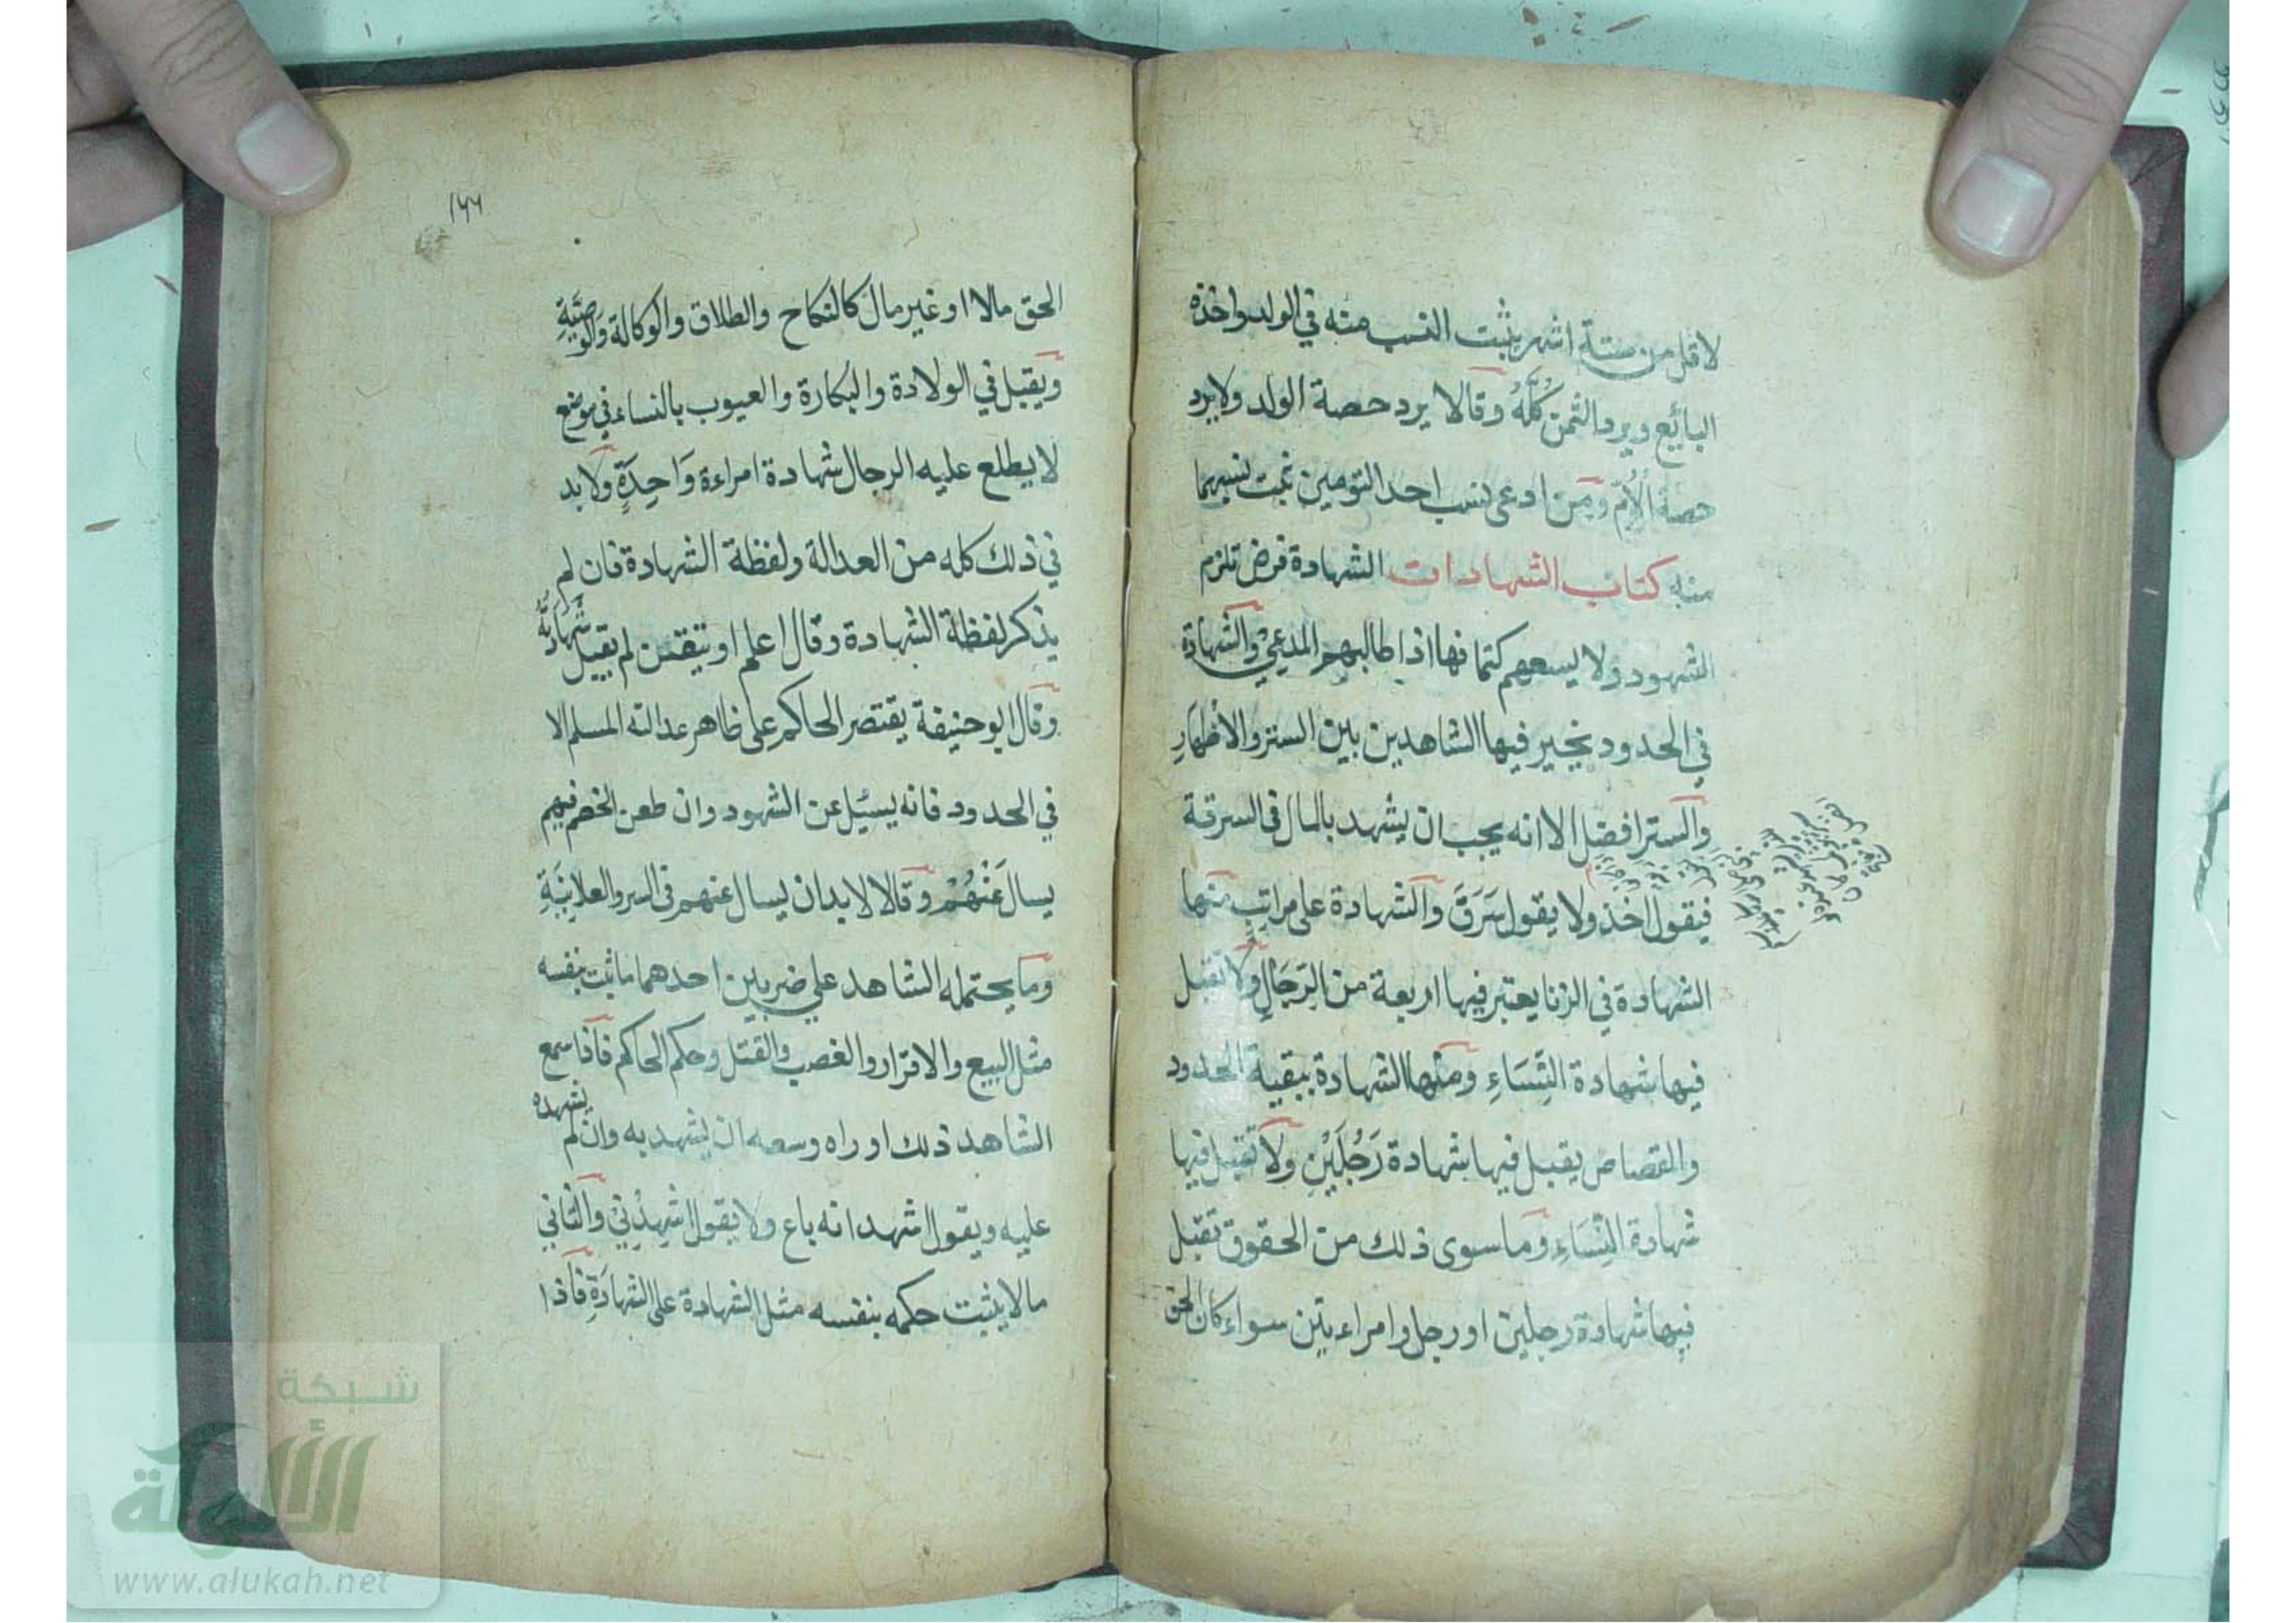 لاقل من ستة اشهر يثبت النسب منه في الولد واخذه
البائع ويرد الثمن كُلَّهُ وقالا يرد حصة الولد ولا يرد
حصة الْاُمّ ومن ادعى نسب احد التومين ثبت نسبهما
منه كتاب الشهادات الشهادة فرض تلزم
الشهود ولا يسعهم كتمانها اذا طالبهم المدعي والشهادة
في الحدود يخير فيها الشاهدين بين الستر والاظهارِ
والستر افضل الا انه يجب ان يشهد بالمال في السرقة
فيقول اخذ ولا يقول سَرَقَ والشهادة على مراتب منها
الشهادة في الزنا يعتبر فيها اربعة من الرّجَالِ ولا تقبل
فيها شهادة النِّسَاءِ ومنها الشهادة ببقية الحدود
والقصاص يقبل فيها شهادة رَجُلَيْنِ ولا تقبل فيها
شهادة النِّسَاءِ وما سوى ذلك من الحقوق تقبل
فيها شهادة رجلين او رجل وامراءتين سواء كان الحق
١٦٦
الحق مالا او غير مال كالنكاح والطلاق والوكالة وَالوصيَّةِ
ويقبل في الولادة والبكارة والعيوب بالنساء في موضع
لا يطلع عليه الرجال شهادة امراءة وَاحِدَةٍ ولا بد
في ذلك كله من العدالة ولفظة الشهادة فان لم
يذكر لفظة الشهادة وقال اعلم او تيقنن لم يقبل شَهَادَتُهُ
وقال ابو حنيفة يقتصر الحاكم على ظاهر عدالته المسلم الا
في الحدود فانه يسئل عن الشهود وان طعن الخصم فيهم
يسال عَنْهُمْ وقالا لا بد ان يسال عنهم في السر والعلانِيَةِ
وما يحتمله الشاهد على ضربين احدهما ما ثبت بنفسه
مثل البيع والاقرار والغصب والقتل وحكم الحاكم فاذا سمع
الشاهد ذلك او راه وسعه ان يشهد به وان لم يشهده
عليه ويقول اشهد انه باع ولا يقول اشهِدْنِيْ والثاني
ما لا يثبت حكمه بنفسه مثل الشهادة على الشهادَةِ فاذا
شبكة
الألوكة
www.alukah.net